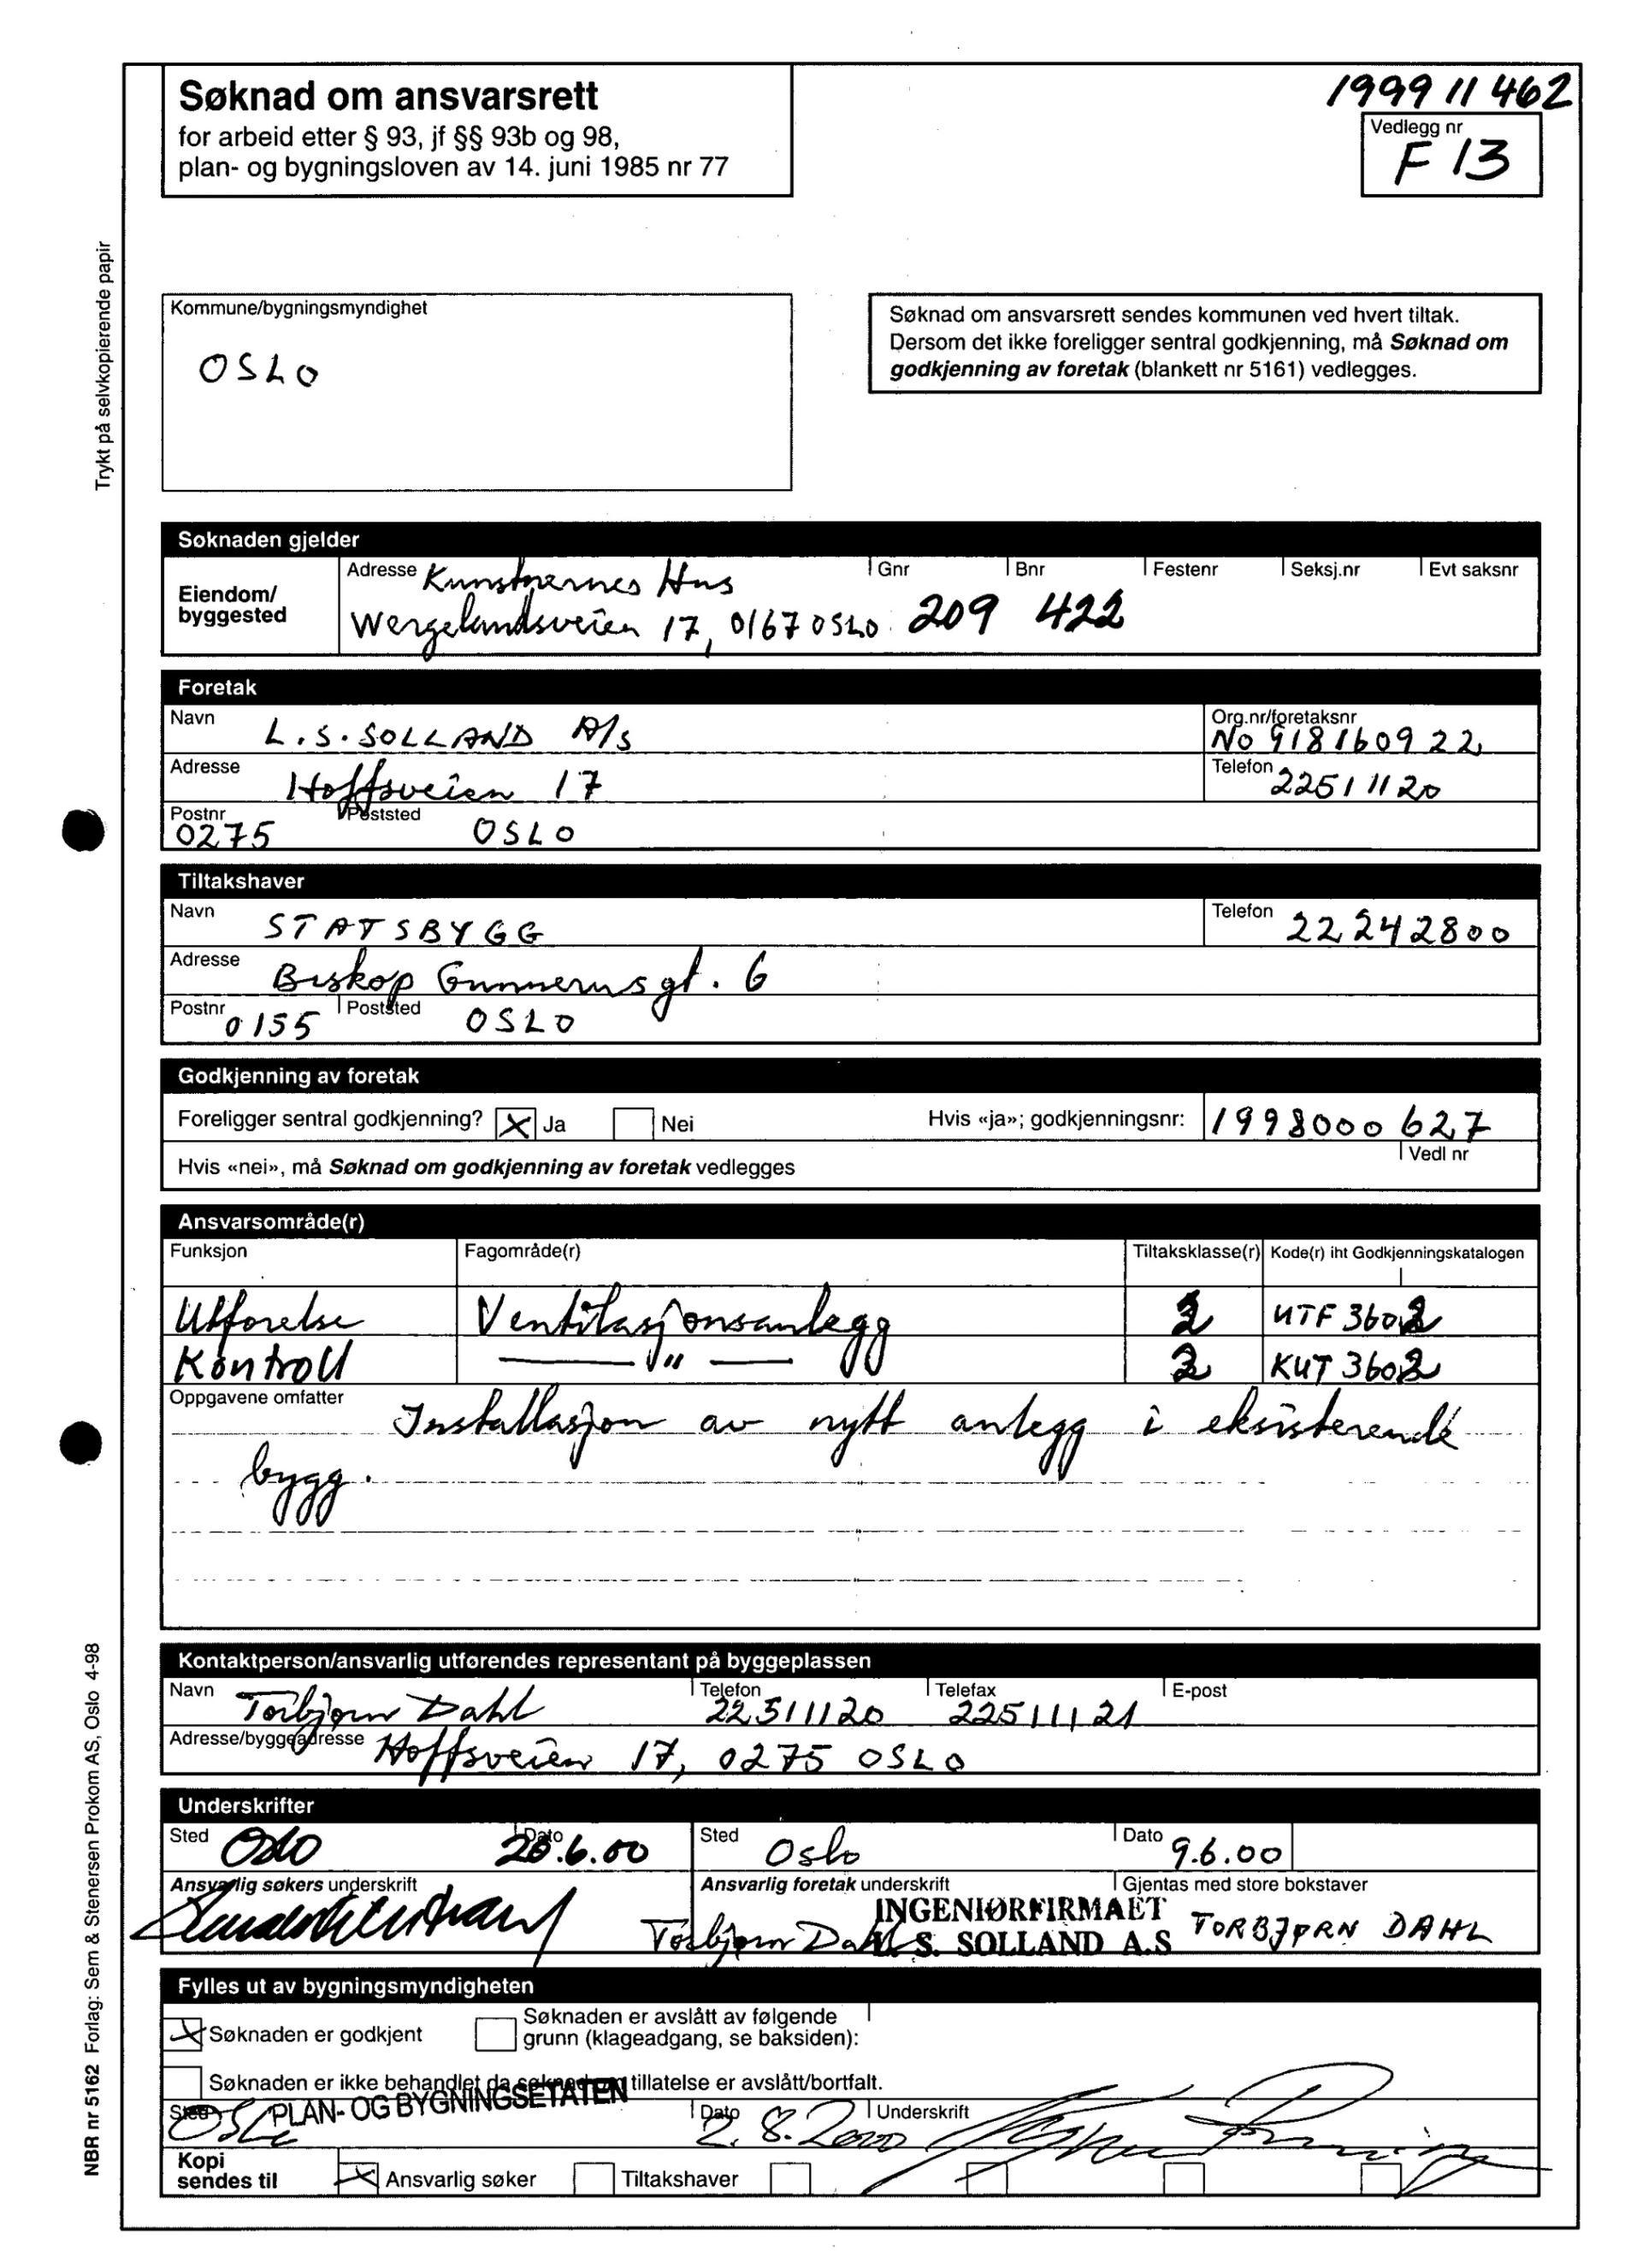 Søknad om ansvarsrett
for arbeid etter § 93, jf §§ 93b og 98,
plan- og bygningsloven av 14. juni 1985 nr 77
1999 11 462
Vedlegg nr
F 13
Trykt på selvkopierende papir
Kommune/bygningsmyndighet
OSLO
Søknad om ansvarsrett sendes kommunen ved hvert tiltak.
Dersom det ikke foreligger sentral godkjenning, må Søknad om
godkjenning av foretak (blankett nr 5161) vedlegges.
Søknaden gjelder
Eiendom/
byggested
Adresse Kunstnernes Hus Gnr Bnr Festenr Seksj.nr Evt saksnr
Wergelandsveien 17, 0167 OSLO 209 422
Foretak
Navn L.S. SOLLAND A/S Org.nr/foretaksnr
NO 918160922
Adresse Hoffsveien 17 Telefon 22511120
Postnr Poststed
0275 OSLO
Tiltakshaver
Navn STATSBYGG Telefon 22242800
Adresse Biskop Gunnerusgt. 6
Postnr 0155 Poststed OSLO
Godkjenning av foretak
Foreligger sentral godkjenning? X Ja Nei Hvis «ja»; godkjenningsnr: 1998000627
Hvis «nei», må Søknad om godkjenning av foretak vedlegges Vedl nr
Ansvarsområde(r)
Funksjon Fagområde(r) Tiltaksklasse(r) Kode(r) iht Godkjenningskatalogen
Utførelse Ventilasjonsanlegg 2 UTF 360.2
Kontroll — " — 2 KUT 360.2
Oppgavene omfatter Installasjon av nytt anlegg i eksisterende
bygg.
Kontaktperson/ansvarlig utførendes representant på byggeplassen
Navn Torbjørn Dahl Telefon 22511120 Telefax 22511121 E-post
Adresse/byggeadresse Hoffsveien 17, 0275 OSLO
Underskrifter
Sted Oslo Dato 20.6.00 Sted Oslo Dato 9.6.00
Ansvarlig søkers underskrift Ansvarlig foretak underskrift Gjentas med store bokstaver
INGENIØRFIRMAET
Torbjørn Dahl L. S. SOLLAND A.S TORBJØRN DAHL
Fylles ut av bygningsmyndigheten
X Søknaden er godkjent Søknaden er avslått av følgende
grunn (klageadgang, se baksiden):
Søknaden er ikke behandlet da søknad om tillatelse er avslått/bortfalt.
PLAN- OG BYGNINGSETATEN
Sted Oslo Dato 2.8.2000 Underskrift
Kopi
sendes til X Ansvarlig søker Tiltakshaver
NBR nr 5162 Forlag: Sem & Stenersen Prokom AS, Oslo 4-98